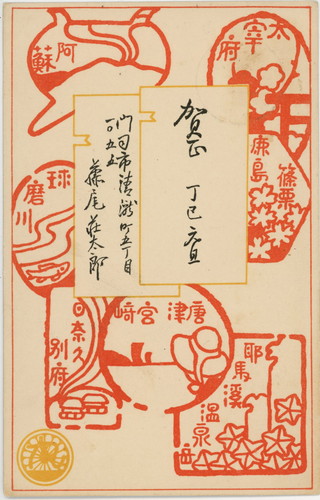 太宰府
阿蘇
賀正
丁巳 元旦
門司市清瀧町五丁目
藤尾荘太郎
篠栗
鹿島
球磨川
唐津
宮崎
日奈久
別府
耶馬溪
温泉岳